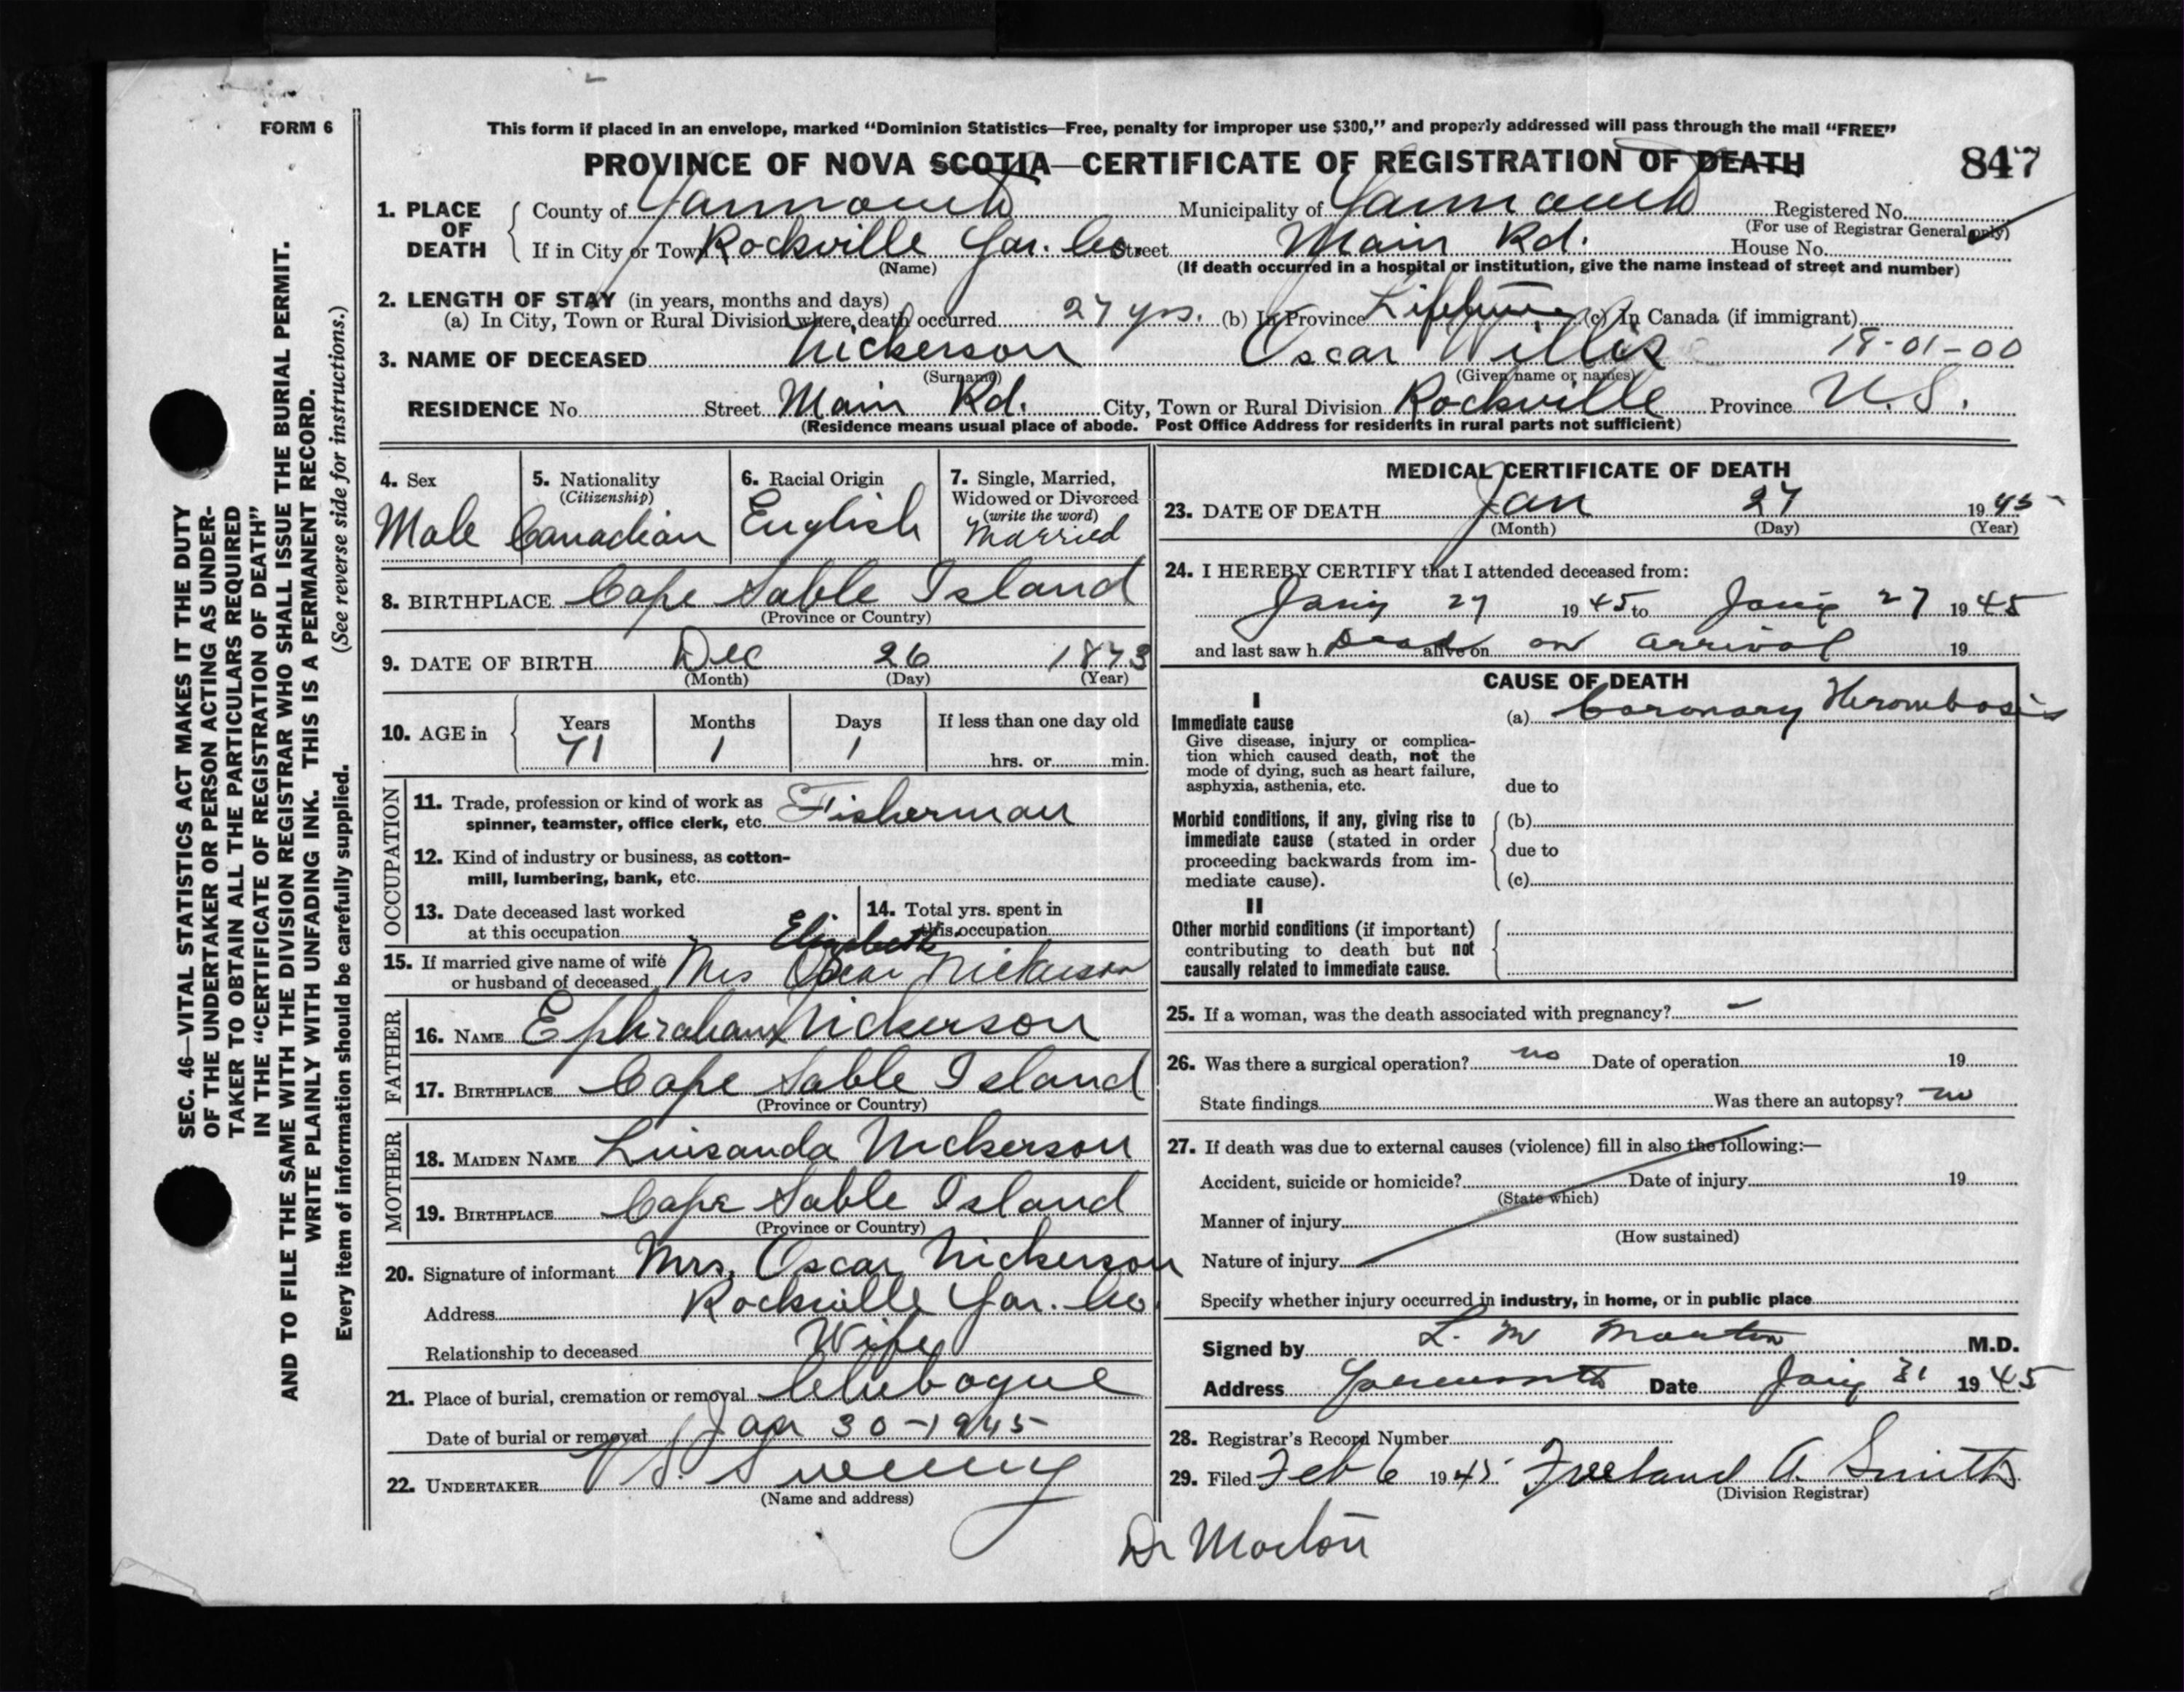 FORM 6
This form if placed in an envelope, marked “Dominion Statistics—Free, penalty for improper use $300,” and properly addressed will pass through the mail “FREE”
PROVINCE OF NOVA SCOTIA—CERTIFICATE OF REGISTRATION OF DEATH 847
1. PLACE OF DEATH County of Yarmouth Municipality of Yarmouth Registered No.
(For use of Registrar General only)
If in City or Town Rockville Yar. Co Street Main Rd. House No.
(Name) (If death occurred in a hospital or institution, give the name instead of street and number)
2. LENGTH OF STAY (in years, months and days)
(a) In City, Town or Rural Division where death occurred 27 yrs. (b) In Province Lifetime (c) In Canada (if immigrant)
3. NAME OF DECEASED Nickerson Oscar Willis 18-01-00
(Surname) (Given name or names)
RESIDENCE No Street Main Rd. City, Town or Rural Division Rockville Province N.S.
(Residence means usual place of abode. Post Office Address for residents in rural parts not sufficient)
4. Sex
Male
5. Nationality
(Citizenship)
Canadian
6. Racial Origin
English
7. Single, Married,
Widowed or Divorced
(write the word)
Married
8. BIRTHPLACE Cape Sable Island
(Province or Country)
9. DATE OF BIRTH Dec 26 1873
(Month) (Day) (Year)
10. AGE in Years Months Days If less than one day old
71 1 1 hrs. or min.
OCCUPATION
11. Trade, profession or kind of work as
spinner, teamster, office clerk, etc. Fisherman
12. Kind of industry or business, as cotton-
mill, lumbering, bank, etc.
13. Date deceased last worked
at this occupation
14. Total yrs. spent in
this occupation
Elizabeth
15. If married give name of wife
or husband of deceased Mrs Oscar Nickerson
FATHER
16. NAME Ephraham Nickerson
17. BIRTHPLACE Cape Sable Island
(Province or Country)
MOTHER
18. MAIDEN NAME Luisanda Nickerson
19. BIRTHPLACE Cape Sable Island
(Province or Country)
20. Signature of informant Mrs. Oscar Nickerson
Address Rockville Yar. Co.
Relationship to deceased Wife
21. Place of burial, cremation or removal Chebogue
Date of burial or removal Jan 30-1945
22. UNDERTAKER V S. Sweeny
(Name and address)
MEDICAL CERTIFICATE OF DEATH
23. DATE OF DEATH Jan 27 1945
(Month) (Day) (Year)
24. I HEREBY CERTIFY that I attended deceased from:
Jany 27 1945 to Jany 27 1945
and last saw h Dead alive on on arrival 19
CAUSE OF DEATH
I
Immediate cause (a) Coronary Thrombosis
Give disease, injury or complica-
tion which caused death, not the
mode of dying, such as heart failure,
asphyxia, asthenia, etc. due to
Morbid conditions, if any, giving rise to (b)
immediate cause (stated in order
proceeding backwards from im- due to
mediate cause). (c)
II
Other morbid conditions (if important)
contributing to death but not
causally related to immediate cause.
25. If a woman, was the death associated with pregnancy? -
26. Was there a surgical operation? no Date of operation 19
State findings Was there an autopsy? no
27. If death was due to external causes (violence) fill in also the following:—
Accident, suicide or homicide? Date of injury 19
(State which)
Manner of injury
(How sustained)
Nature of injury
Specify whether injury occurred in industry, in home, or in public place
Signed by L. M Morton M.D.
Address Yarmouth Date Jany 31 1945
28. Registrar's Record Number
29. Filed Feb 6 1945 Freeland A. Smith
(Division Registrar)
Dr Morton
SEC. 46—VITAL STATISTICS ACT MAKES IT THE DUTY
OF THE UNDERTAKER OR PERSON ACTING AS UNDER-
TAKER TO OBTAIN ALL THE PARTICULARS REQUIRED
IN THE “CERTIFICATE OF REGISTRATION OF DEATH”
AND TO FILE THE SAME WITH THE DIVISION REGISTRAR WHO SHALL ISSUE THE BURIAL PERMIT.
WRITE PLAINLY WITH UNFADING INK. THIS IS A PERMANENT RECORD.
Every item of information should be carefully supplied. (See reverse side for instructions.)